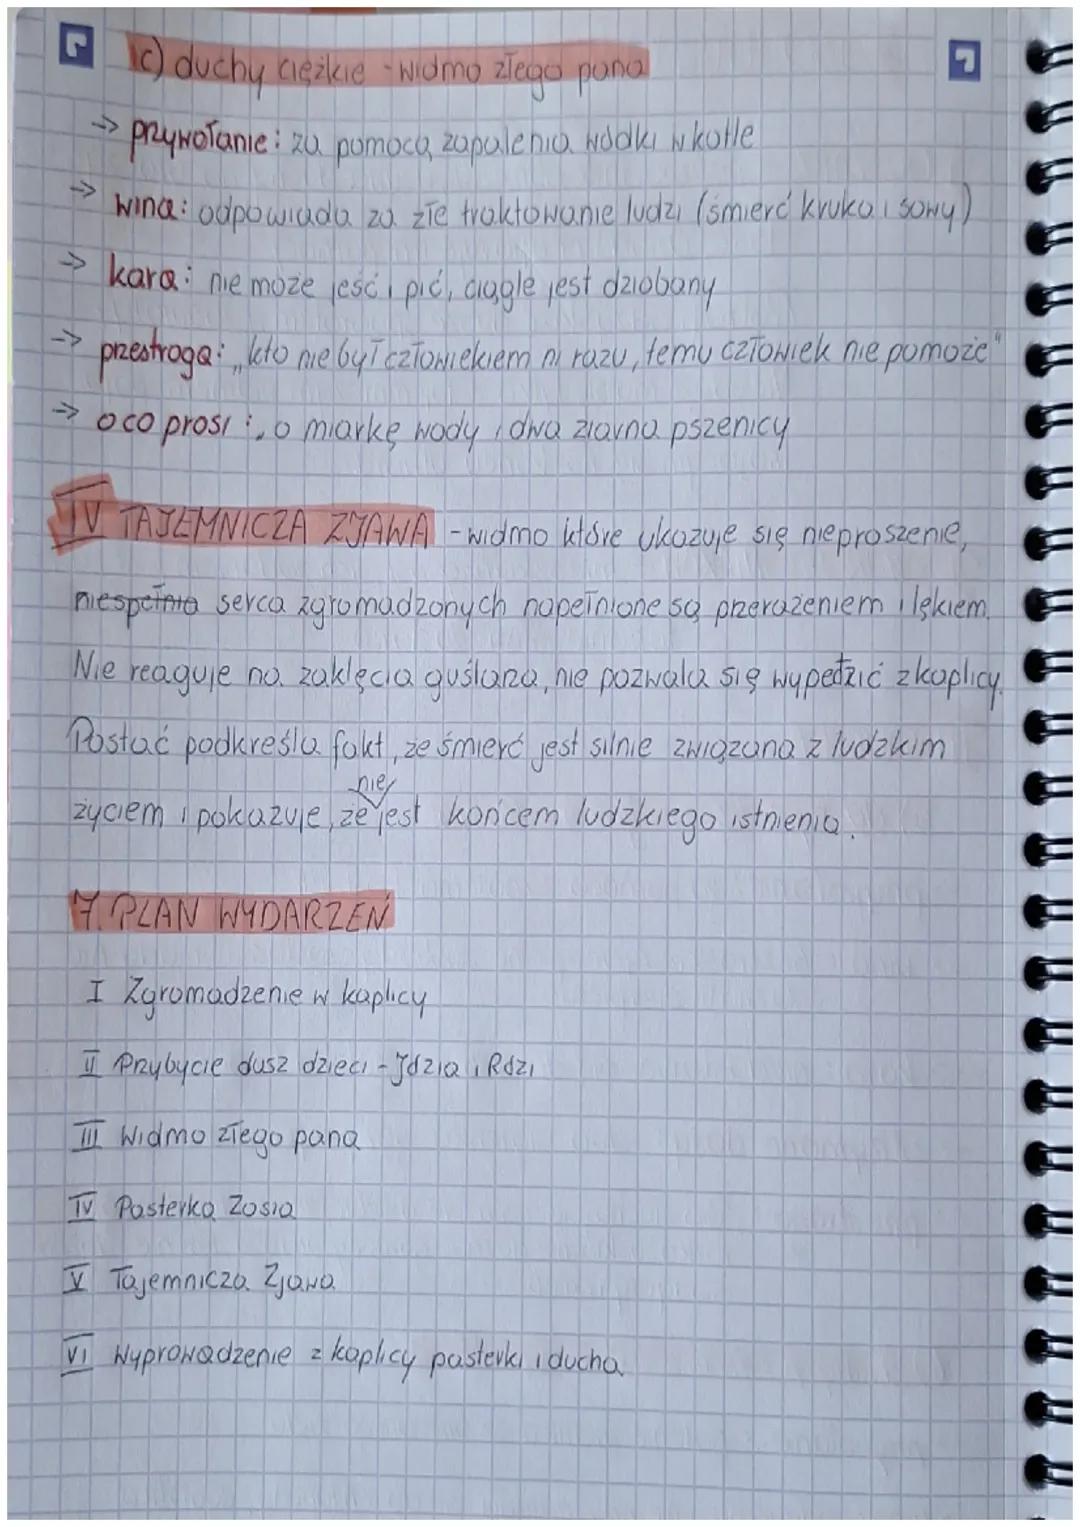 c) duchy ciężkie - widmo złego pana
-> przywołanie: za pomocą zapalenia wódki w kotle
-> wina: odpowiada za złe traktowanie ludzi (śmierć kruka i sowy)
-> kara: nie może jeść i pić, ciągle jest dziobany
-> przestroga: „kto nie był człowiekiem ni razu, temu człowiek nie pomoże"
-> o co prosi: o miarkę wody i dwa ziarna pszenicy
IV TAJEMNICZA ZJAWA - widmo które ukazuje się nieproszenie,
niespełnia serca zgromadzonych napełnione są przerażeniem i lękiem.
Nie reaguje na zaklęcia guślarza, nie pozwala się wypędzić z kaplicy.
Postać podkreśla fakt, że śmierć jest silnie związana z ludzkim
nie
życiem i pokazuje, że jest końcem ludzkiego istnienia.
7. PLAN WYDARZEŃ
I Zgromadzenie w kaplicy
II Przybycie dusz dzieci - Józia i Rózi
III Widmo złego pana
IV Pasterka Zosia
V Tajemnicza Zjawa
VI Wyprowadzenie z kaplicy pasterki i ducha